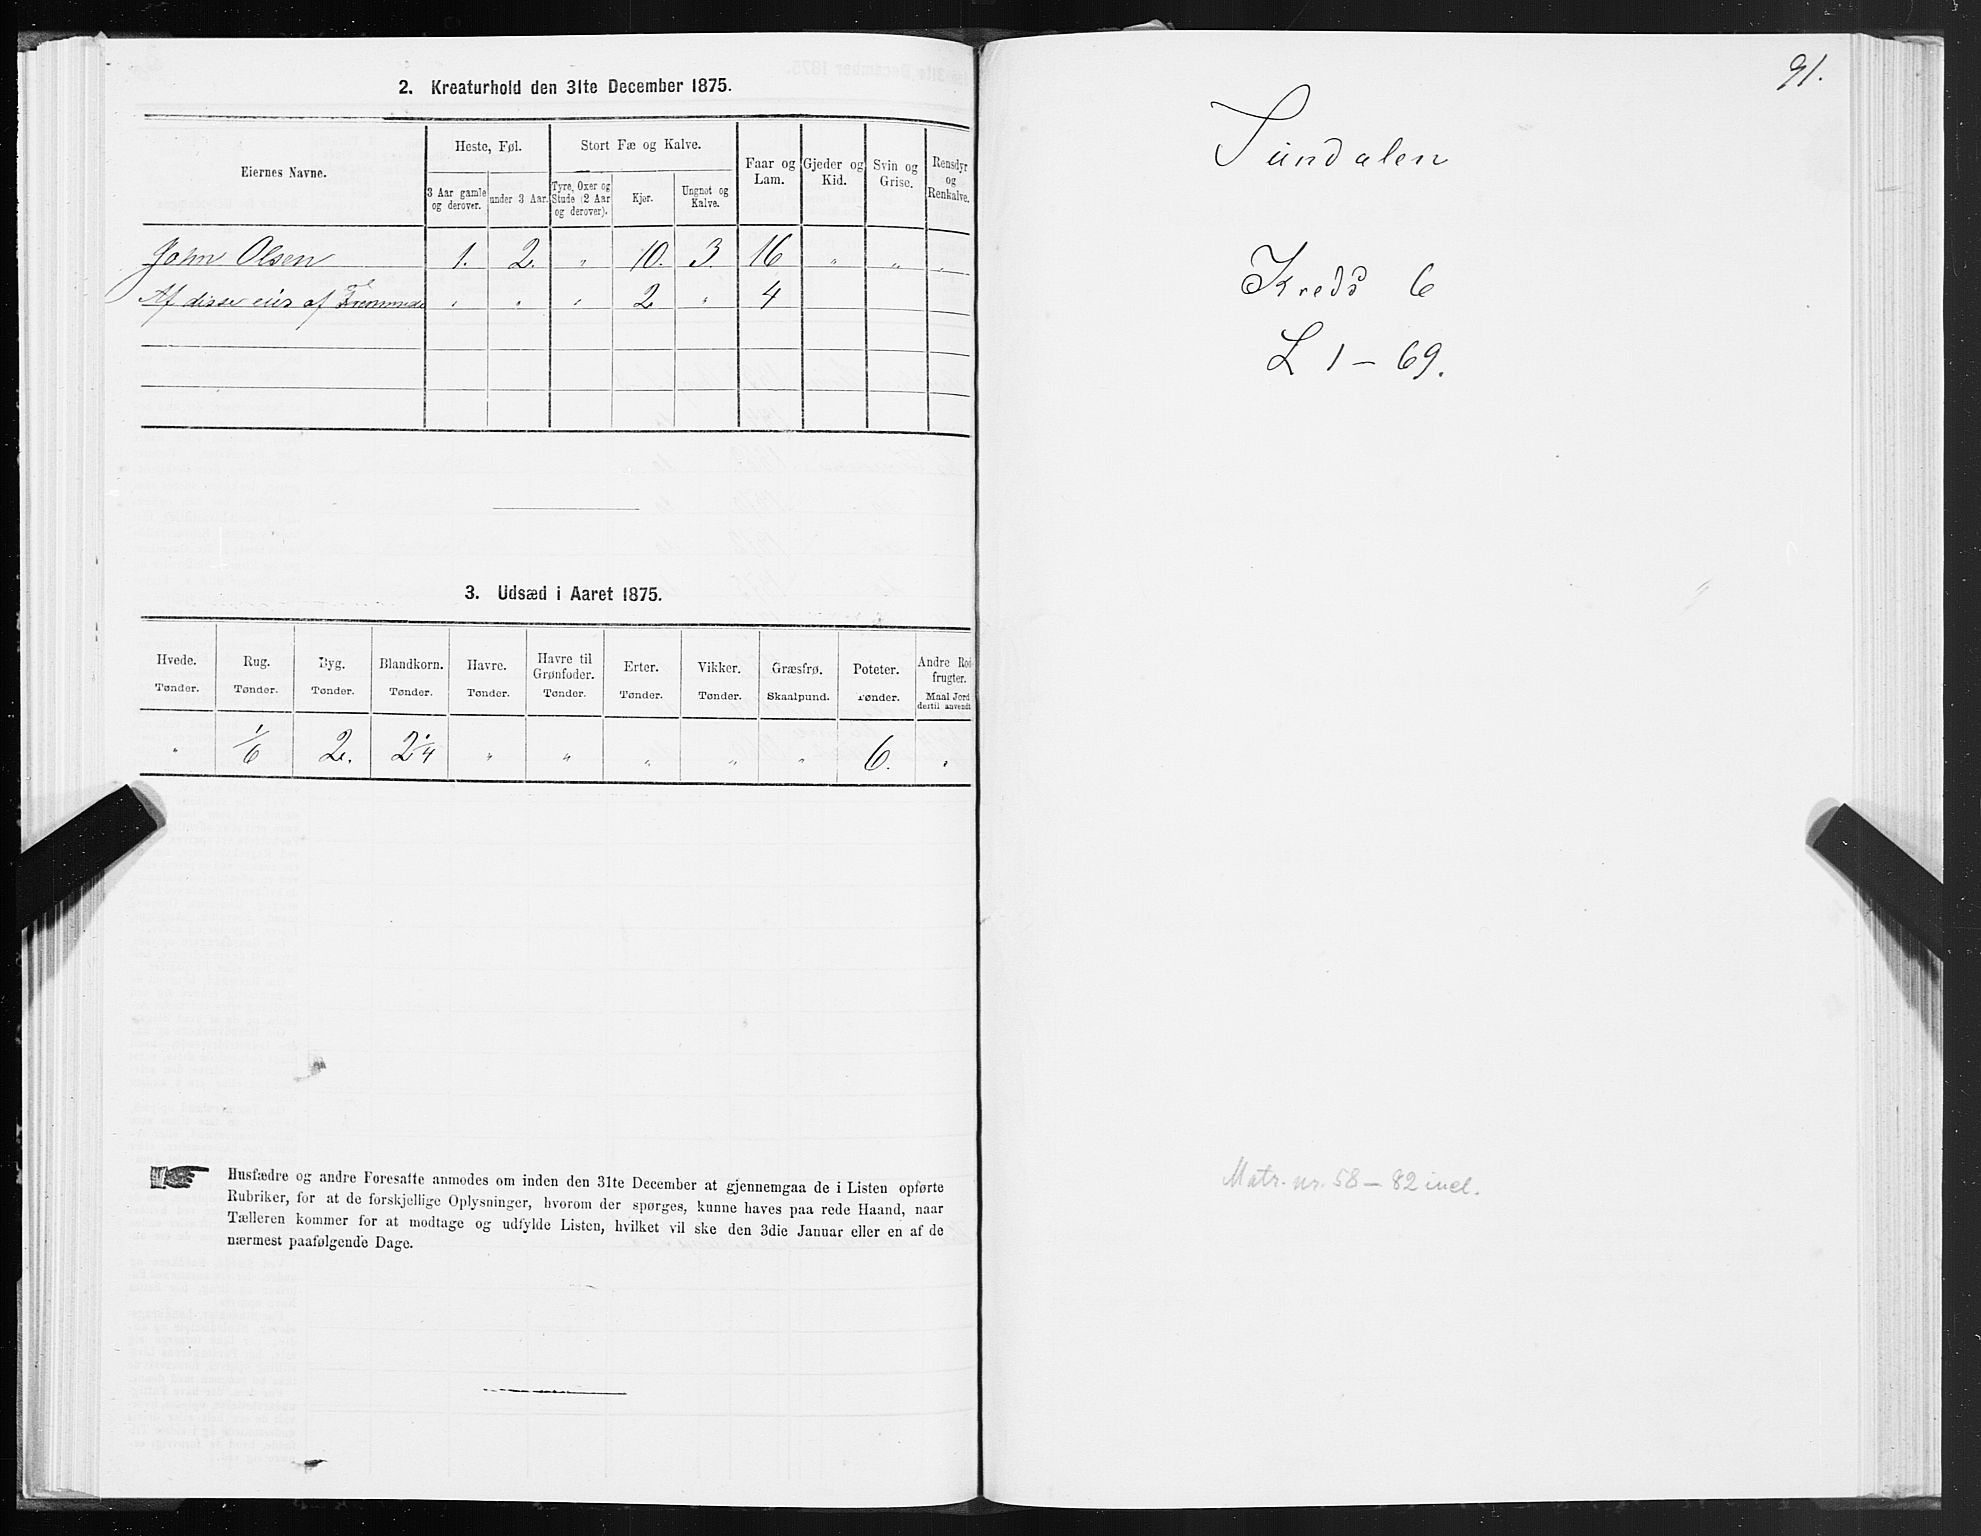 2. Kreaturhold den 31te December 1875.
Eiernes Navne.
Heste, Føl.
Stort Fæ og Kalve.
Faar og Lam.
Gjeder og Kid.
Svin og Grise.
Rensdyr og Renkalve.
3 Aar gamle og derover.
under 3 Aar.
Tyre, Oxer og Stude (2 Aar og derover).
Kjør.
Ungnøt og Kalve.
John Olsen 1. 2. " 10. 3. 16 " " "
Af disse eies af Fremmede " " " 2 " 4
3. Udsæd i Aaret 1875.
Hvede. Rug. Byg. Blandkorn. Havre. Havre til Grønfoder. Erter. Vikker. Græsfrø. Poteter. Andre Rodfrugter.
Tønder. Tønder. Tønder. Tønder. Tønder. Tønder. Tønder. Tønder. Skaalpund. Tønder. Maal Jord dertil anvendt
" 1/6 2. 2 1/4 " " " " " 6. "
Husfædre og andre Foresatte anmodes om inden den 31te December at gjennemgaa de i Listen opførte
Rubriker, for at de forskjellige Oplysninger, hvorom der spørges, kunne haves paa rede Haand, naar
Tælleren kommer for at modtage og udfylde Listen, hvilket vil ske den 3die Januar eller en af de
nærmest paafølgende Dage.
91.
Sundalen
Kreds 6
L 1 – 69.
Matr. nr. 58 – 82 incl.